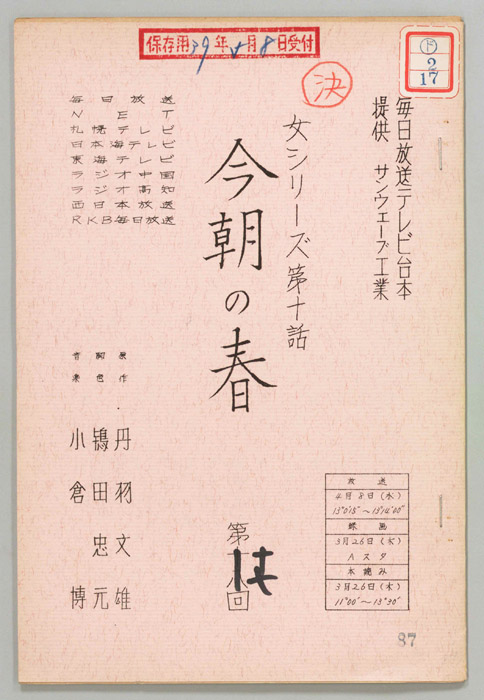 保存用39年4月8日受付
ド
2
17
決
毎日放送テレビ台本
提供 サンウエーブ工業
女シリーズ第十話
今朝の春
毎日放送
NET
札幌テレビ
日本海テレビ
東海テレビ
ラジオ中国
ラジオ高知
西日本放送
RKB毎日放送
原作 丹羽文雄
脚色 鴇田忠元
音楽 小倉博
第 回
放送
4月8日(水)
13°0'15"〜13°14'00"
録画
3月26日(木)
Aスタ
本読み
3月26日(木)
11°00'〜13°30'
87